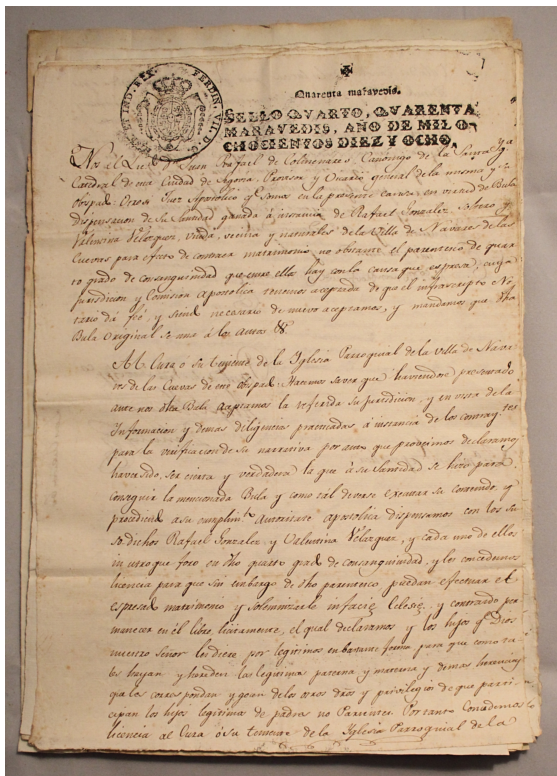 FERDIN. VII. D. G.
IND. REX
Quarenta maravedis.
SELLO QVARTO, QVARENTA
MARAVEDIS, AÑO DE MIL O-
CHOCIENTOS DIEZ Y OCHO.
Nos el Juan Rafael de Canonigo de la Santa Yga
Catedral de esta Ciudad de Segovia Provisor y Vicario general de la misma y
Obispado Juez Apostolico qe somos en la presente causa en virtud de Bula
dispensacion de su Santidad ganada á instancia de Rafael Gonzalez soltero y
Valentina Velazquez, viuda, vecina y naturales de la Villa de Navares de las
Cuevas para efecto de contraer matrimonio no obstante el parentesco de quar
to grado de consanguinidad que entre ellos hay con la causa que espresa, cuya
jurisdicion y Comision Apostolica tenemos aceptada de que el infrascripto No
tario dá feé, y siendo necesario de nuevo aceptamos, y mandamos que dha
Bula Original se una á los Autos &.
Al Cura o su teniente de la Yglesia Parroquial de la villa de Nava
res de las Cuevas de este Obispado: Hacemos saver que haviendose presentado
ante nos dha Bula Aceptamos la referida Jurisdicion, y en vista de la
Informacion y demas diligencias practicadas á instancia de los contrayentes
para la verificacion de su narrativa por auto que proveimos declaramos
haver sido, ser cierta y verdadera la que á su Santidad se hizo para
conseguir la mencionada Bula y como tal deverse executar su contenido y
procediendo a su cumplimto autoritate apostolica dispensamos con los su
sodichos Rafael Gonzalez, y Valentina Velazquez, y cada uno de ellos
in utroque foro en dho quarto grado de consanguinidad, y les concedemos
licencia para que sin embargo de dho parentesco puedan efectuar el
espresado matrimonio y solemnizarle in facie Eclesie, y contraido per
manecer en él libre, licitamente, el qual declaramos y los hijos qe Dios
nuestro Señor les diere por legitimos en bastante forma para que como ta
les hayan y hereden las legitimas paterna y materna y demas herencias
que les correspondan y gozen de los otros dros y privilegios de que parti
cipan los hijos legitimos de padres no Parientes. Por tanto Concedemos
licencia al Cura ó su teniente de la Yglesia Parroquial de la